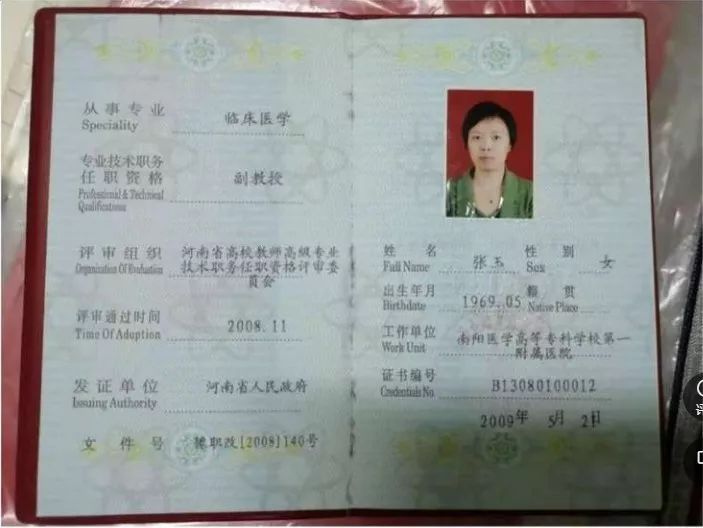 从事专业
Speciality
临床医学
专业技术职务
任职资格
Professional & Technical
Qualifications
副教授
评审组织
Organization Of Evaluation
河南省高校教师高级专业
技术职务任职资格评审委
员会
评审通过时间
Time Of Adoption
2008.11
发证单位
Issuing Authority
河南省人民政府
文件号
豫职改[2008]140号
姓名
Full Name
张玉
性别
Sex
女
出生年月
Birthdate
1969.05
籍贯
Native Place
工作单位
Work Unit
南阳医学高等专科学校第一
附属医院
证书编号
Credentials No.
B13080100012
2009年 5月 2日
评